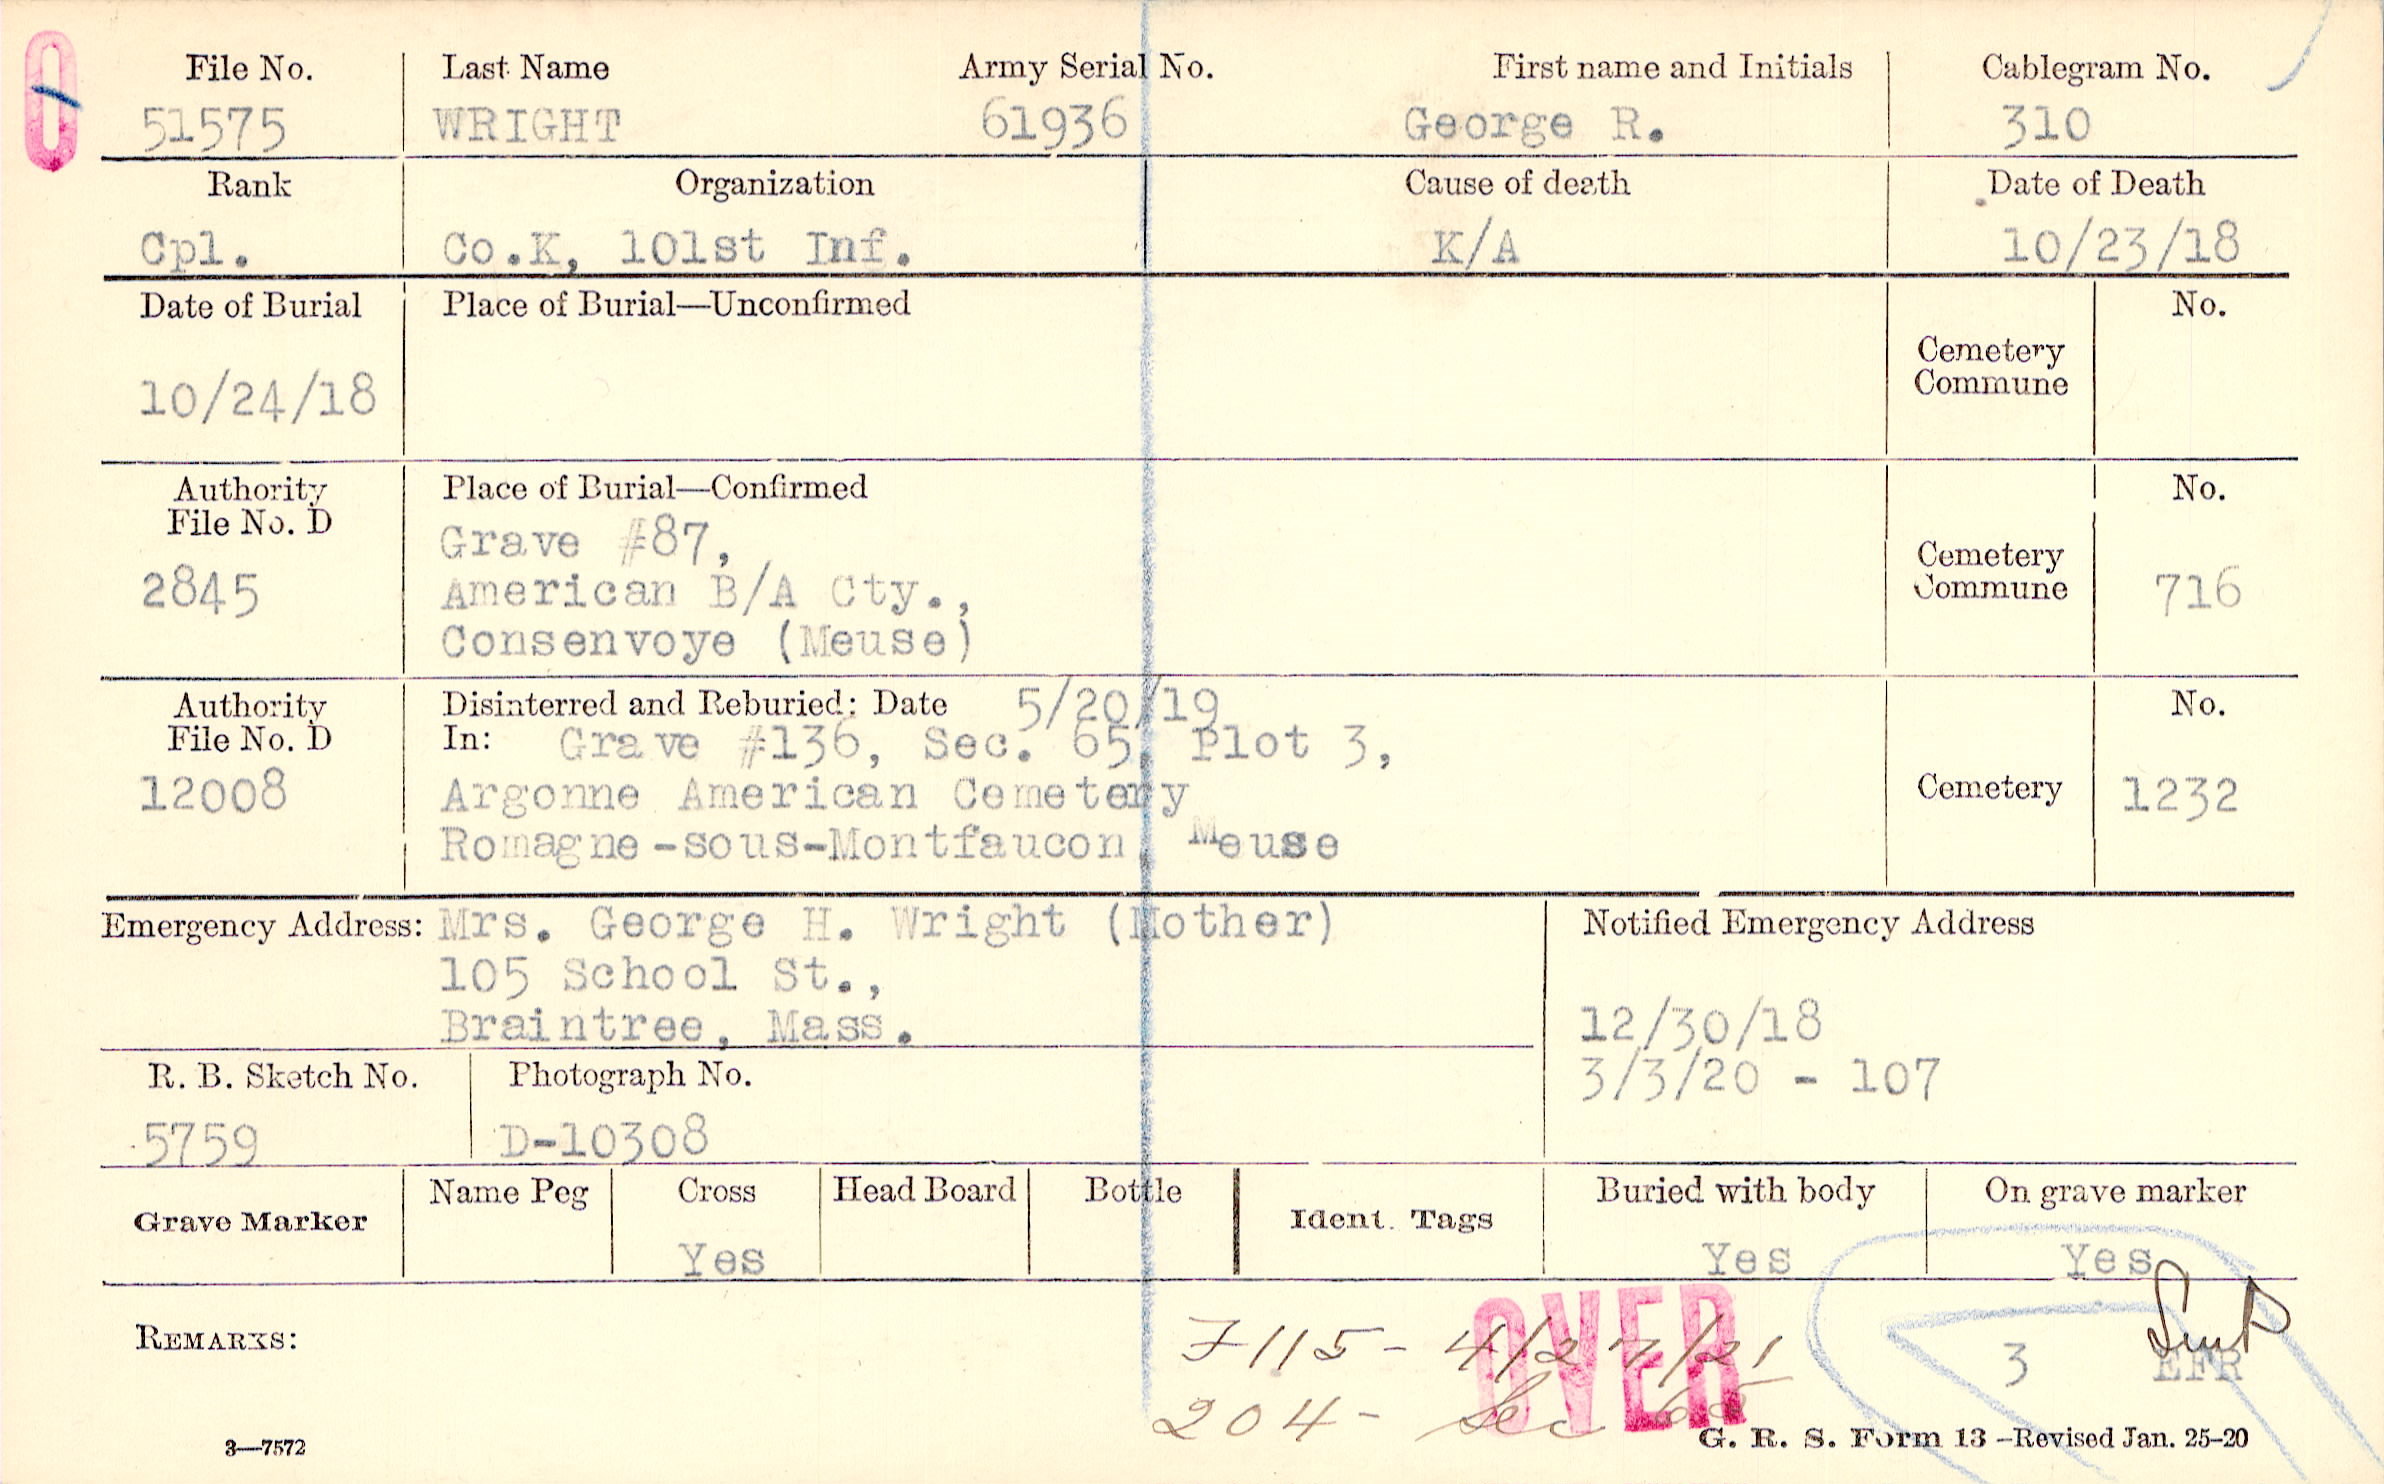 File No. Last Name Army Serial No. First name and Initials Cablegram No.
51575 WRIGHT 61936 George R. 310
Rank Organization Cause of death Date of Death
Cpl. Co.K, 101st Inf. K/A 10/23/18
Date of Burial Place of Burial—Unconfirmed No.
Cemetery
Commune
10/24/18
Authority Place of Burial—Confirmed No.
File No. D
Grave #87,
Cemetery
2845 American B/A Cty., Commune 716
Consenvoye (Meuse)
Authority Disinterred and Reburied: Date 5/20/19 No.
File No. D In: Grave #136, Sec. 65, Plot 3,
12008 Argonne American Cemetery Cemetery 1232
Romagne-sous-Montfaucon, Meuse
Emergency Address: Mrs. George H. Wright (Mother) Notified Emergency Address
105 School St.,
Braintree, Mass. 12/30/18
R. B. Sketch No. Photograph No. 3/3/20 - 107
5759 D-10308
Name Peg Cross Head Board Bottle Buried with body On grave marker
Grave Marker Ident. Tags
Yes Yes Yes
OVER
REMARKS: F115- 4/27/21 3 EFR
204- Sec 65
3—7572 G. R. S. Form 13 -Revised Jan. 25-20